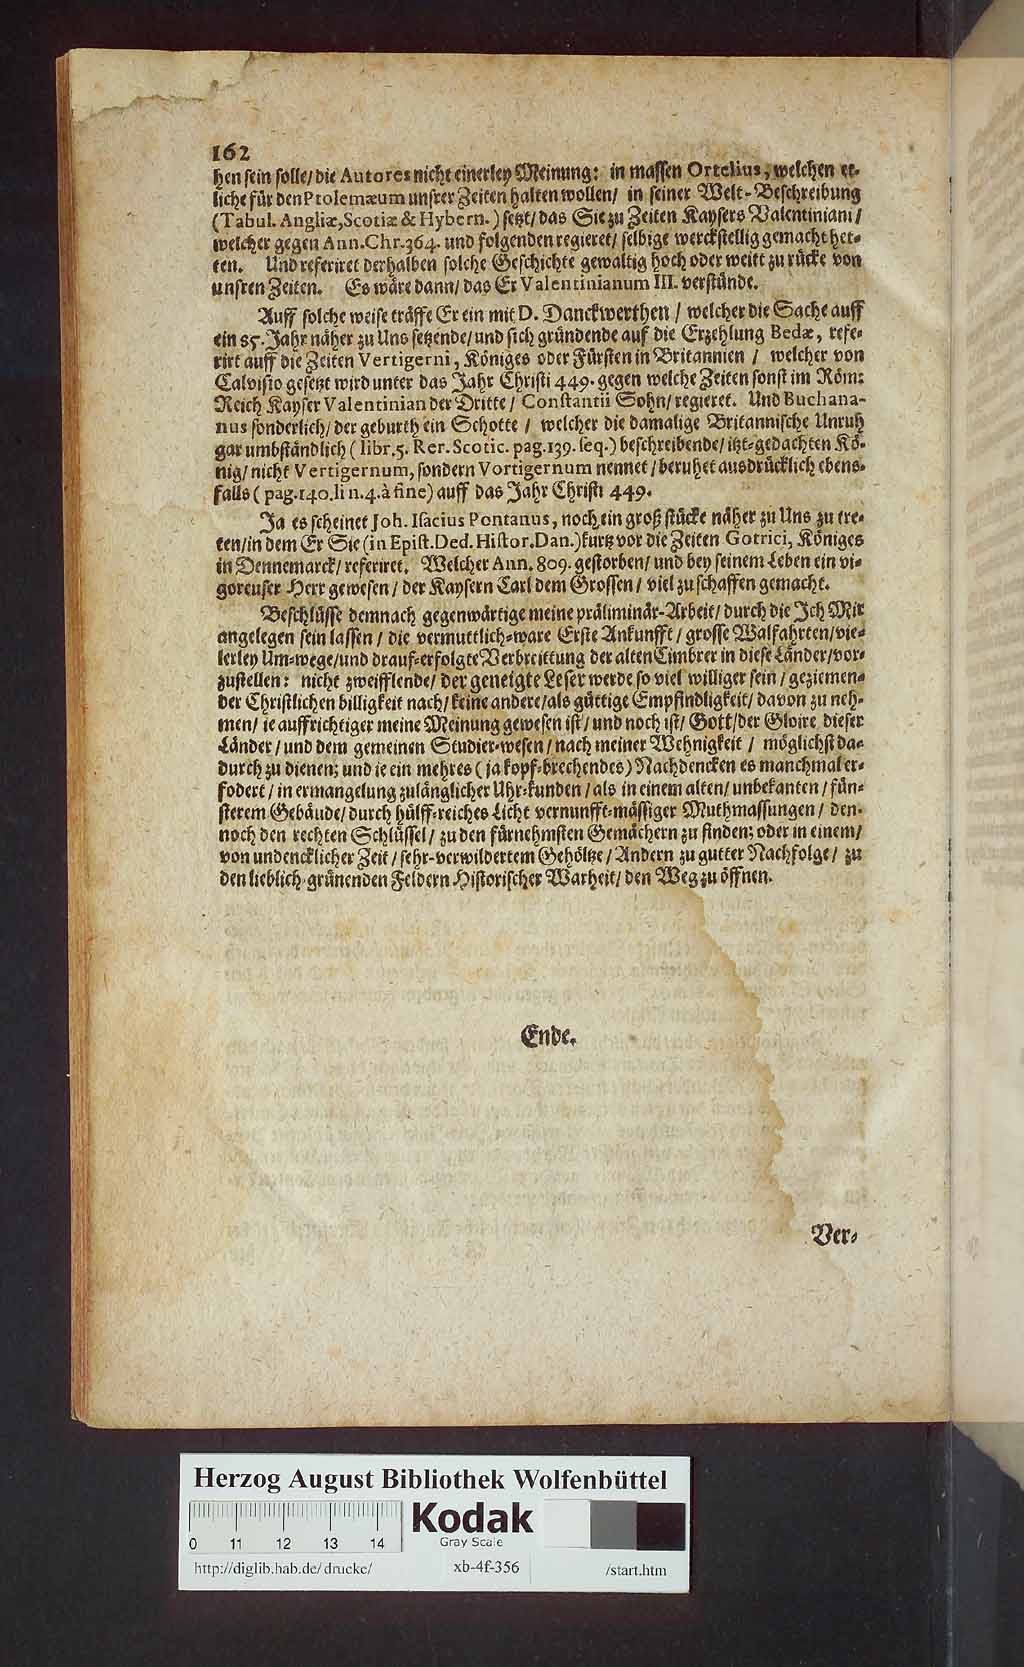 162
hen sein solle/ die Autores nicht einerley Meinung: in massen Ortelius, welchen et-
liche für den Ptolemæum unsrer Zeiten halten wollen/ in seiner Welt-Beschreibung
(Tabul. Angliæ, Scotiæ & Hybern.) setzt/ das Sie zu Zeiten Kaysers Valentiniani/
welcher gegen Ann. Chr. 364. und folgenden regieret/ selbige werckstellig gemacht het-
ten. Und referiret derhalben solche Geschichte gewaltig hoch oder weitt zu rücke von
unsren Zeiten. Es wäre dann/ das Er Valentinianum III. verstünde.
Auff solche weise träffe Er ein mit D. Danckwerthen / welcher die Sache auff
ein 85. Jahr näher zu Uns setzende/ und sich gründende auf die Erzehlung Bedæ, refe-
rirt auff die Zeiten Vertigerni, Königes oder Fürsten in Britannien / welcher von
Calvisio gesetzt wird unter das Jahr Christi 449. gegen welche Zeiten sonst im Röm:
Reich Kayser Valentinian der Dritte / Constantii Sohn/ regieret. Und Buchana-
nus sonderlich/ der geburth ein Schotte / welcher die damalige Britannische Unruh
gar umbständlich ( libr. 5. Rer. Scotic. pag. 139. seq.) beschreibende/ itzt-gedachten Kö-
nig/ nicht Vertigernum, sondern Vortigernum nennet / beruhet ausdrücklich ebens-
falls ( pag. 140. lin. 4. à fine) auff das Jahr Christi 449.
Ja es scheinet Joh. Isacius Pontanus, noch ein groß stücke näher zu Uns zu tre-
ten/ in dem Er Sie (in Epist. Ded. Histor. Dan.) kurtz vor die Zeiten Gotrici, Königes
in Dennemarck/ referiret. Welcher Ann. 809. gestorben/ und bey seinem Leben ein vi-
goreuser Herr gewesen / der Kaysern Carl dem Grossen / viel zu schaffen gemacht.
Beschlüsse demnach gegenwärtige meine präliminär-Arbeit/ durch die Jch Mir
angelegen sein lassen / die vermuttlich-ware Erste Ankunfft / grosse Walfahrten/ vie-
lerley Um-wege/ und drauf-erfolgte Verbreittung der alten Cimbrer in diese Länder/ vor-
zustellen: nicht zweifflende/ der geneigte Leser werde so viel williger sein / geziemen-
der Christlichen billigkeit nach/ keine andere/ als güttige Empfindligkeit/ davon zu neh-
men/ ie auffrichtiger meine Meinung gewesen ist/ und noch ist/ Gott/ der Gloire dieser
Länder / und dem gemeinen Studier-wesen / nach meiner Wehnigkeit / möglichst da-
durch zu dienen; und ie ein mehres ( ja kopf-brechendes) Nachdencken es manchmal er-
fodert / in ermangelung zulänglicher Uhr-kunden / als in einem alten/ unbekanten / fün-
sterem Gebäude/ durch hülff-reiches Licht vernunfft-mässiger Muthmassungen / den-
noch den rechten Schlüssel / zu den fürnehmsten Gemächern zu finden; oder in einem/
von undencklicher Zeit / sehr-verwildertem Gehöltze / Andern zu gutter Nachfolge / zu
den lieblich-grünenden Feldern Historischer Warheit/ den Weg zu öffnen.
Ende.
Ver-
Herzog August Bibliothek Wolfenbüttel
0 11 12 13 14
Kodak
Gray Scale
http://diglib.hab.de/drucke/ xb-4f-356 /start.htm